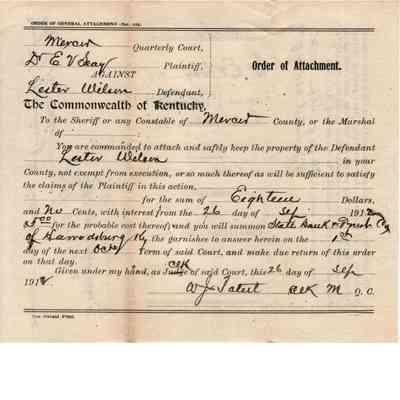 ORDER OF GENERAL ATTACHMENT
Mercer Quarterly Court,
Dr E V Seay Plaintiff,
AGAINST Order of Attachment.
Lester Wilson Defendant,
The Commonwealth of Kentucky,
To the Sheriff or any Constable of Mercer County, or the Marshal
of
You are commanded to attach and safely keep the property of the Defendant
Lester Wilson in your
County, not exempt from execution, or so much thereof as will be sufficient to satisfy
the claims of the Plaintiff in this action,
for the sum of Eighteen Dollars,
and No Cents, with interest from the 26 day of Sep 191
for the probable cost thereof; and you will summon State Bank & Trust Co
of Harrodsburg Ky the garnishee to answer herein on the 1st
day of the next Octo Term of said Court, and make due return of this order
on that day.
Given under my hand, as Judge clk of said Court, this 26 day of Sep
191
W J Tatut Clk M Q.C.